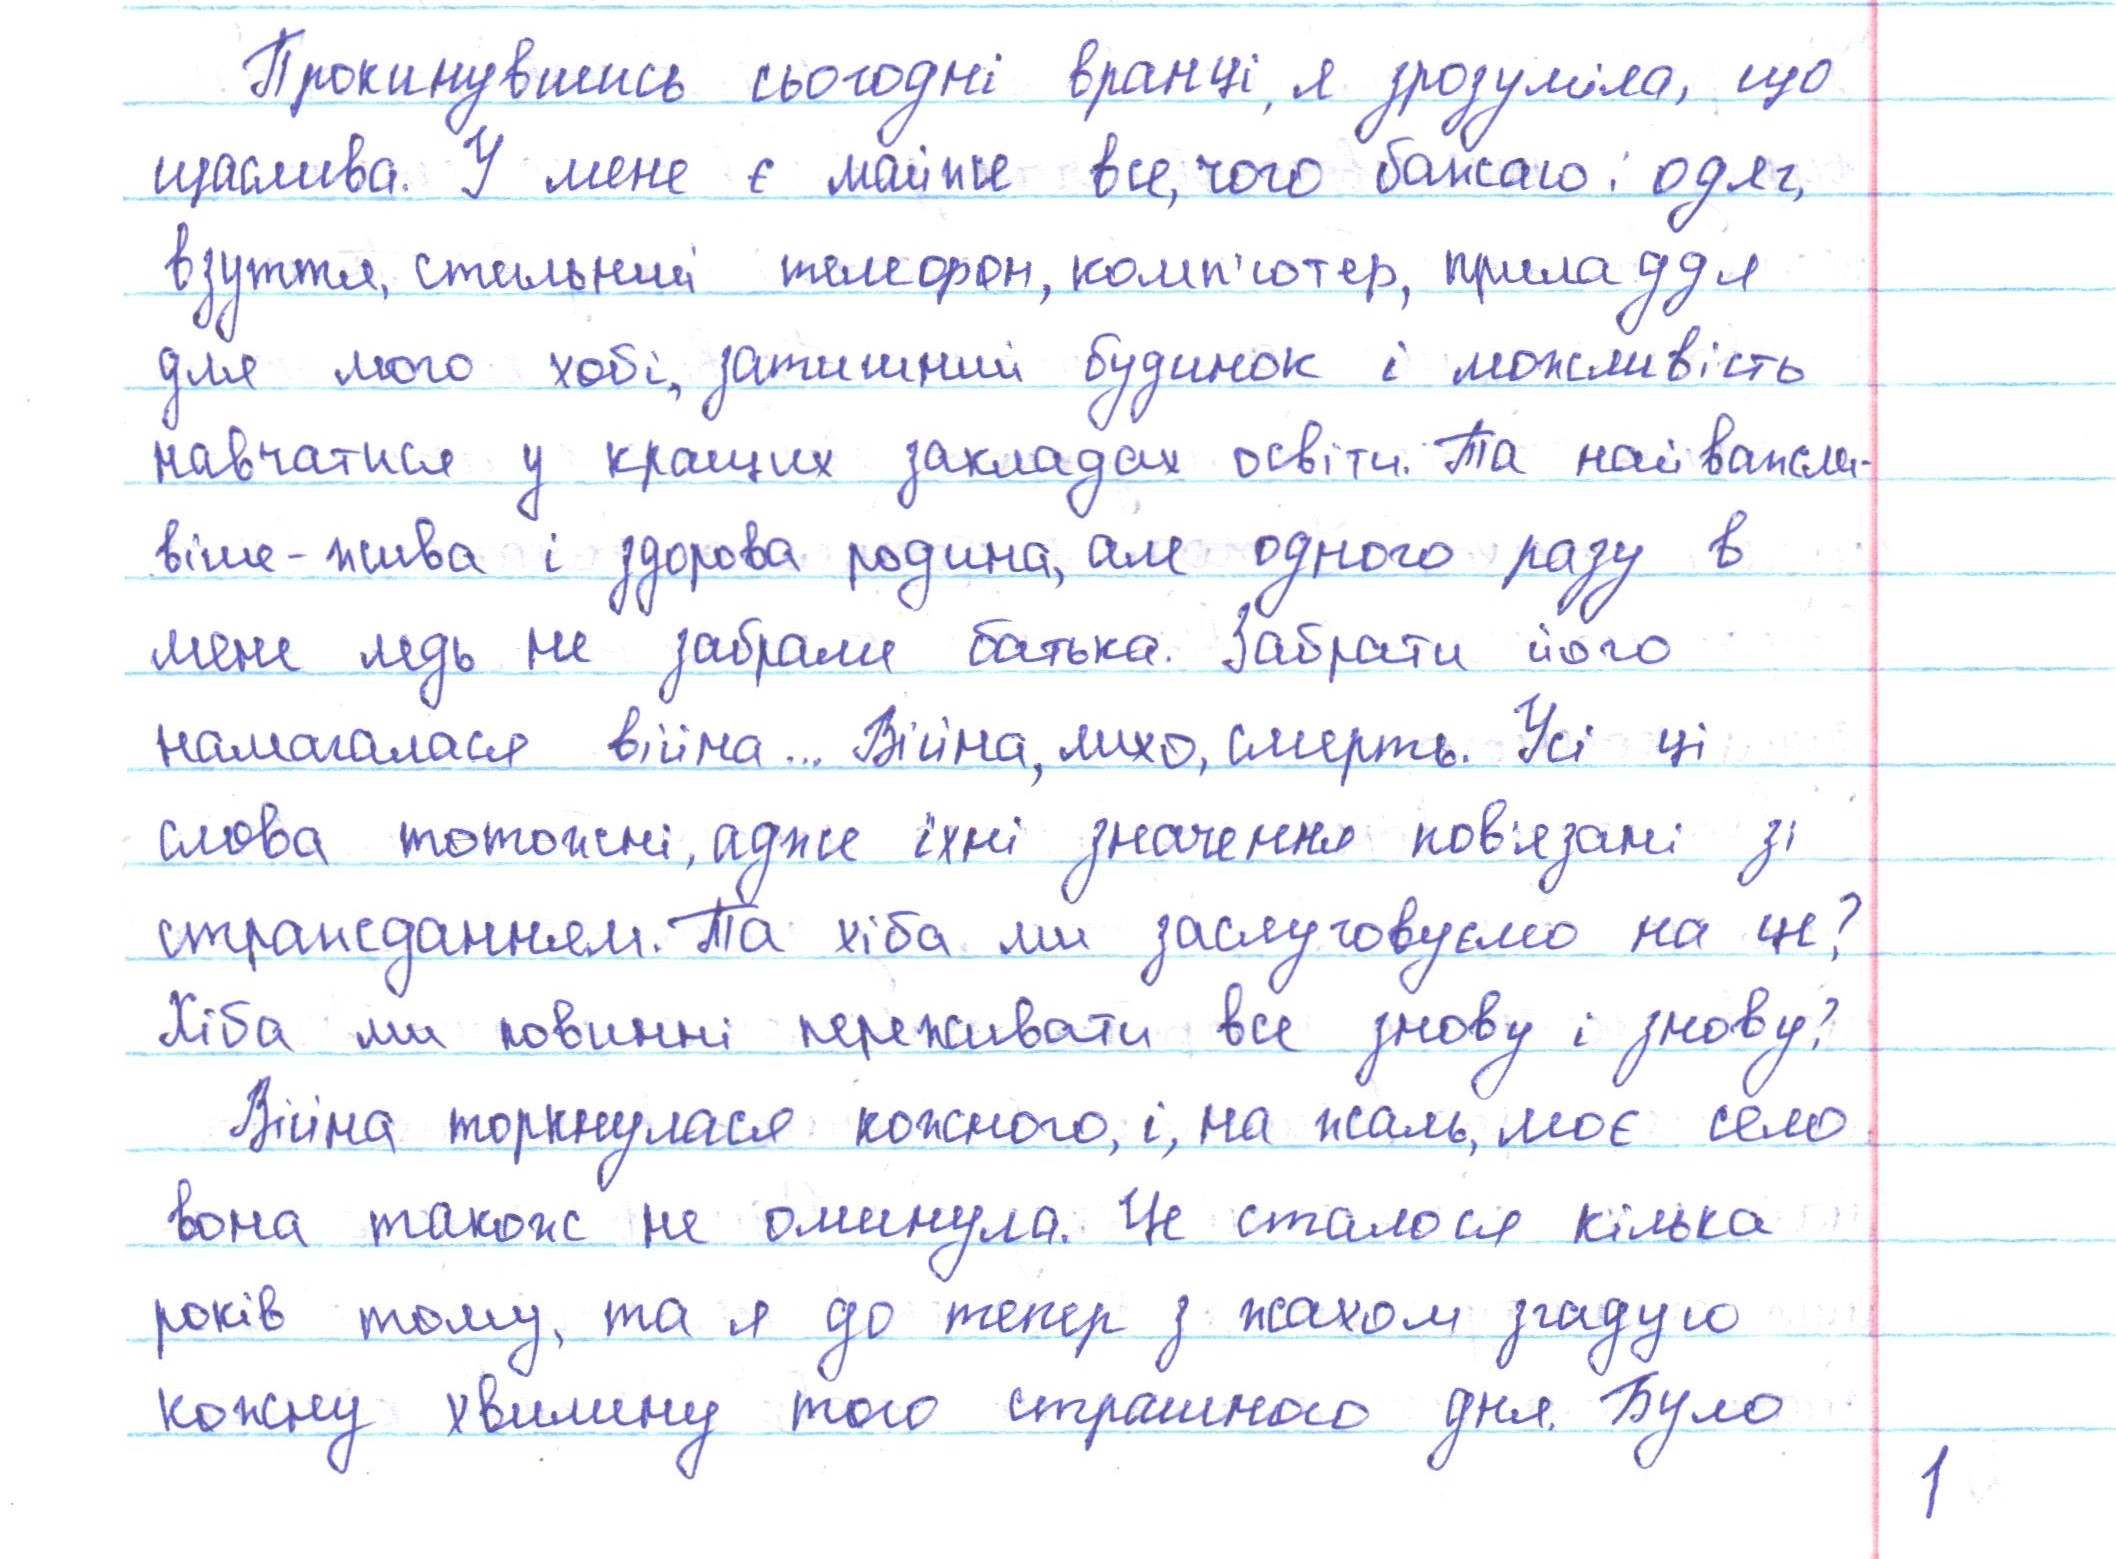 Прокинувшись сьогодні вранці, я зрозуміла, що
щаслива. У мене є майже все, чого бажаю: одяг,
взуття, стильний телефон, комп'ютер, приладдя
для мого хобі, затишний будинок і можливість
навчатися у кращих закладах освіти. Та найважли-
віше - жива і здорова родина, але одного разу в
мене ледь не забрали батька. Забрати його
намагалася війна... Війна, лихо, смерть. Усі ці
слова тотожні, адже їхні значення пов'язані зі
стражданням. Та хіба ми заслуговуємо на це?
Хіба ми повинні переживати все знову і знову?
Війна торкнулася кожного, і, на жаль, моє село
вона також не оминула. Це сталося кілька
років тому, та я до тепер з жахом згадую
кожну хвилину того страшного дня. Було
1